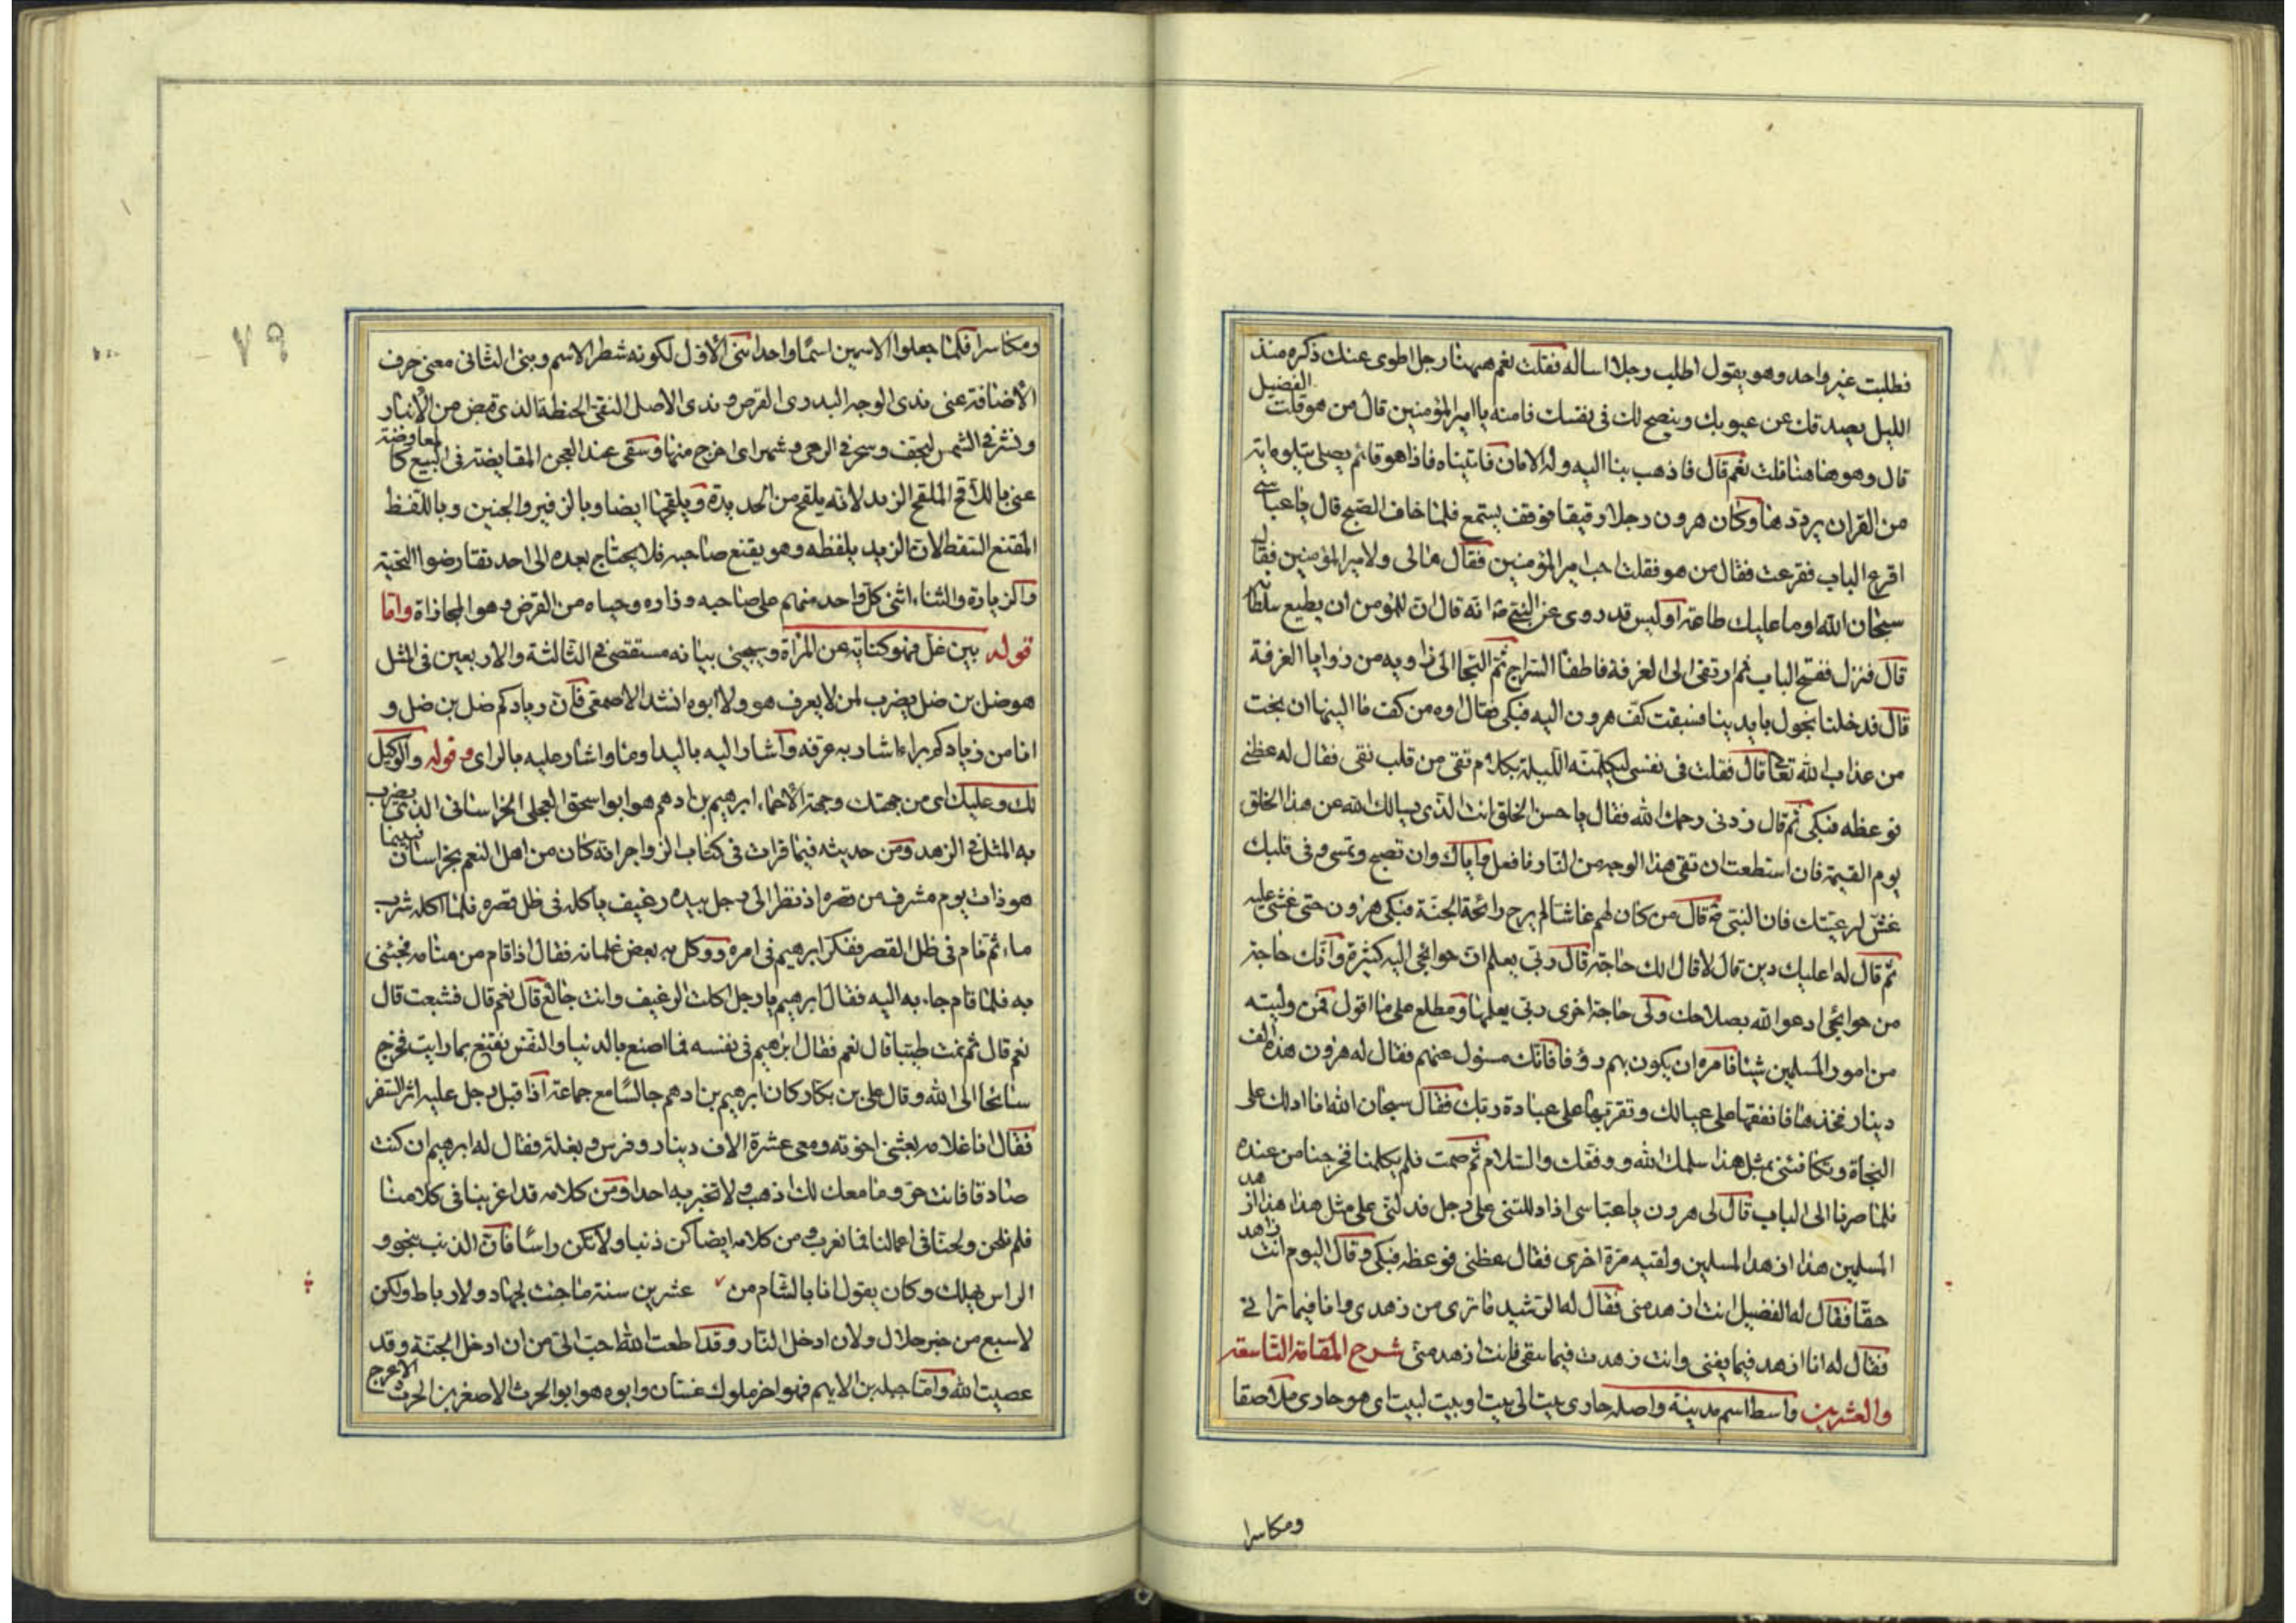 فطلبت غير واحد وهو يقول اطلب رجلا اساله فقلت نعم ههنا رجل اطوى عنك ذكره منذ
الليل يصدقك عن عيوبك وينصح لك فى نفسك فامنه يا امير المؤمنين قال من هو قلت الفضيل
قال وهو هاهنا قلت نعم قال فاذهب بنا اليه وله الامان فاتيناه فاذا هو قائم يصلى يتلو اية
من القران يرددها وكان هرون رجلا رقيقا فوقف يستمع فلما خاف الصبح قال يا عباسى
اقرع الباب فقرعت فقال من هو فقلت اجب امير المؤمنين فقال مالى ولامير المؤمنين فقال
سبحان الله اوما عليك طاعة اوليس قد روى عن النبى انه قال ان للمؤمن ان يطيع سلطانه
قال فنزل ففتح الباب ثم ارتقى الى الغرفة فاطفا السراج ثم التجا الى زاوية من زوايا الغرفة
قال فدخلنا نجول بايدينا فسبقت كف هرون اليه فبكى فقال اوه من كف ما الينها ان نجت
من عذاب الله تعالى قال فقلت فى نفسى ليكلمنه الليلة بكلام تقى من قلب نقى فقال له عظنى
فوعظه فبكى ثم قال زدنى رحمك الله فقال يا حسن الخلق انت الذى يسالك الله عن هذا الخلق
يوم القيمة فان استطعت ان تقى هذا الوجه من النار فافعل واياك وان تصبح وتمسى وفى قلبك
غش لرعيتك فان النبى قال من كان لهم غاشا لم يرح رائحة الجنة فبكى هرون حتى غشى عليه
ثم قال له اعليك دين قال لا قال لك حاجة قال ربى يعلم ان حوائجى اليه كثيرة وانك حاجة
من حوائجى ادعو الله بصلاحك ولى حاجة اخرى ربى يعلمها ومطلع على ما اقول فمن وليته
من امور المسلمين شيئا فامره ان يكون بهم رؤفا فانك مسئول عنهم فقال له هرون هذه الف
دينار فخذها فانفقها على عيالك وتقو بها على عبادة ربك فقال سبحان الله انا ادلك على
النجاة وتكافئنى بمثل هذا سلمك الله ووفقك والسلام ثم صمت فلم يكلمنا فخرجنا من عنده
فلما صرنا الى الباب قال لى هرون يا عباسى اذا دللتنى على رجل فدلنى على مثل هذا هذا ازهد
المسلمين هذا ازهد المسلمين ولقيه مرة اخرى فقال عظنى فوعظه فبكى وقال اليوم انت زاهد
حقا فقال له الفضيل انت ازهد منى فقال له الرشيد ما ترى من زهدى وانا فيما ترانى
فقال له انا ازهد فيما يفنى وانت زهدت فيما يبقى فانت ازهد منى شرح المقامة التاسعة
والعشرين واسط اسم مدينة واصله جارى بيت الى بيت او بيت لبيت اى هو جارى ملاصقا
ومكاسرا
٧٩
ومكاسرا فلما جعلوا الاسمين اسما واحدا بنى الاول لكونه شطر الاسم وبنى الثانى معنى حرف
الاضافة عنى بذى الوجه البدرى القرص وبذى الاصل النقى الحنطة الذى قبض من الانبار
ونشر فى الشمس ليجف وسحر فى الرحى وشهر اى اخرج منها وسقى عند العجن المقايضة فى البيع كالمعاوضة
عنى باللاقح الملقح الزند لانه يلقح من الحديدة ويلقحها ايضا وبالزفير والجنين وباللفظ
المقنع السقط لان الزند يلفظه وهو يقنع صاحبه فلا يحتاج بعده الى احد تقارضوا التحية
والزيارة والثناء اثنى كل واحد منهم على صاحبه وزاره وحياه من القرض وهو المجازاة واما
قوله بين غل فهو كناية عن المراة وسيجئ بيانه مستقصى فى الثالثة والاربعين فى المثل
هو ضل بن ضل يضرب لمن لا يعرف هو ولا ابوه انشد الاصمعى فان زيادكم ضل بن ضل و
انا من زيادكم براء اشار به عرفه واشار اليه باليد اوما واشار عليه بالراى وقوله والوكيل
لك وعليك اى من جهتك وجهة الاحماء ابرهيم بن ادهم هو ابو اسحق العجلى الخراسانى الذى يضرب
به المثل فى الزهد ومن حديثه فيما قرات فى كتاب الزواجر انه كان من اهل النعم بخراسان فبينما
هو ذات يوم مشرف من قصره اذ نظر الى رجل بيده رغيف ياكله فى ظل قصره فلما اكله شرب
ماء ثم نام فى ظل القصر ففكر ابرهيم فى امره ووكل به بعض غلمانه فقال اذا قام من منامه فجئنى
به فلما قام جاء به اليه فقال ابرهيم يا رجل اكلت الرغيف وانت جائع قال نعم قال فشبعت قال
نعم قال ثم نمت طيبا قال نعم فقال ابرهيم فى نفسه فما اصنع بالدنيا والنفس تقنع بما رايت فخرج
سائحا الى الله وقال على بن بكار كان ابرهيم بن ادهم جالسا مع جماعة اذ اقبل رجل عليه اثر السفر
فقال انا غلامه بعثنى اخوته ومعى عشرة الاف دينار وفرس وبغلة فقال له ابرهيم ان كنت
صادقا فانت حر وما معك لك اذهب ولا تخبر به احدا ومن كلامه قد اعربنا فى كلامنا
فلم نلحن ولحنا فى اعمالنا فما نعرب ومن كلامه ايضا كن ذنبا ولا تكن راسا فان الذنب ينجو و
الراس يهلك وكان يقول انا بالشام من عشرين سنة ما جئت لجهاد ولا رباط ولكن
لاشبع من خبز حلال ولان ادخل النار وقد اطعت الله احب الى من ان ادخل الجنة وقد
عصيت الله واما جبلة بن الايهم فهو اخر ملوك غسان وابوه هو ابو الحرث الاصغر بن الحرث الاعرج